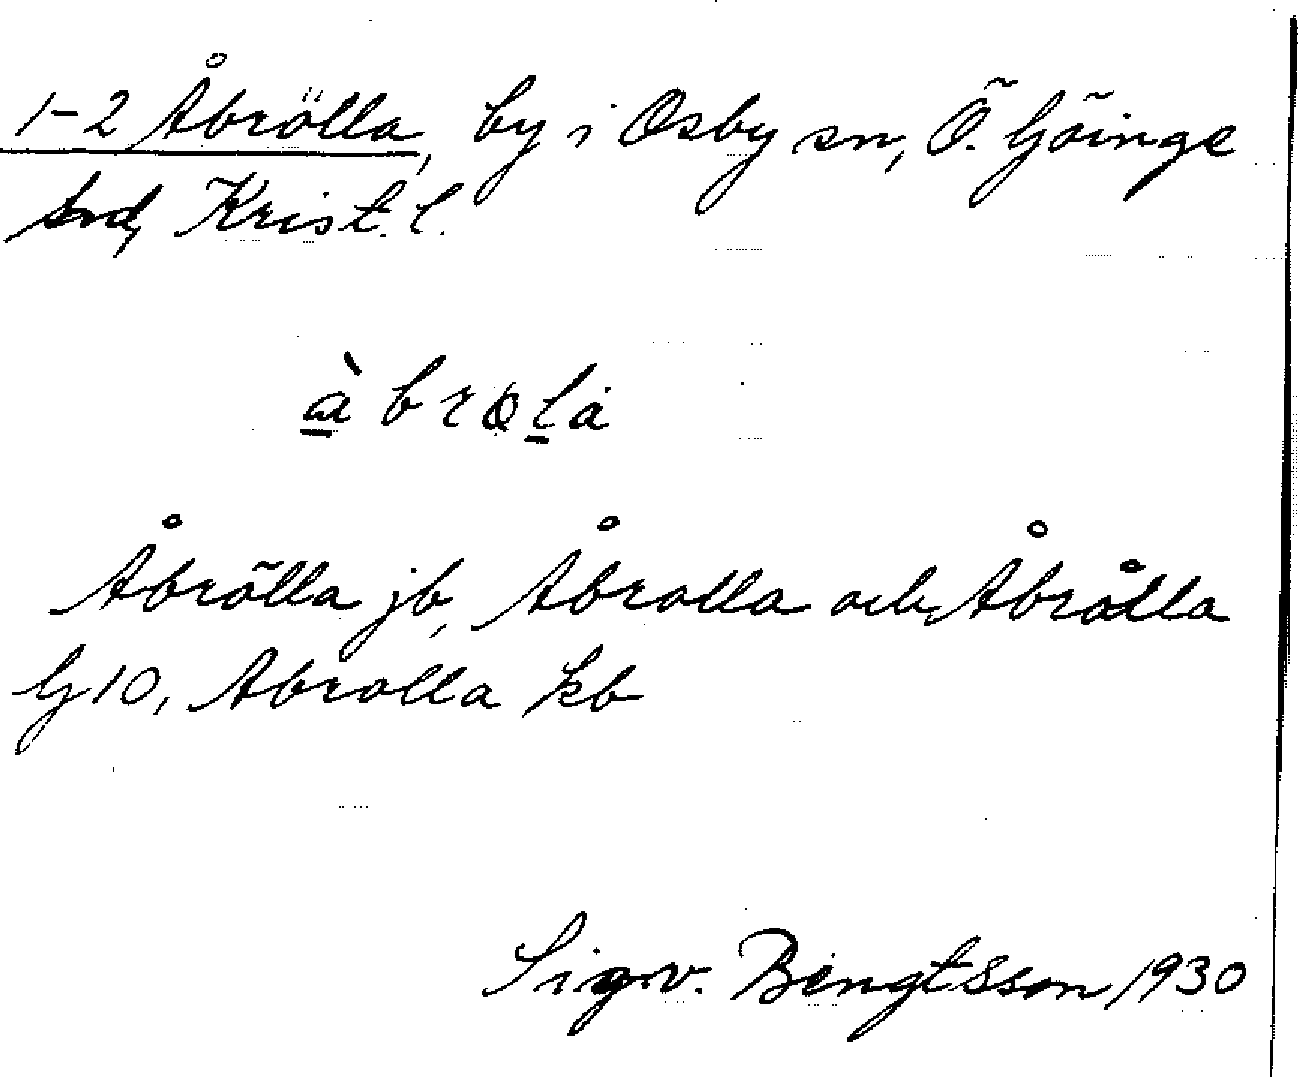 1-2 Åbrölla, by i Osby sn, Ö. Göinge
hrd, Krist. l.
à b r ø l a
Åbrölla jb, Åbrolla och Åbrålla
G 10, Abrolla kb
Sigv. Bengtsson 1930